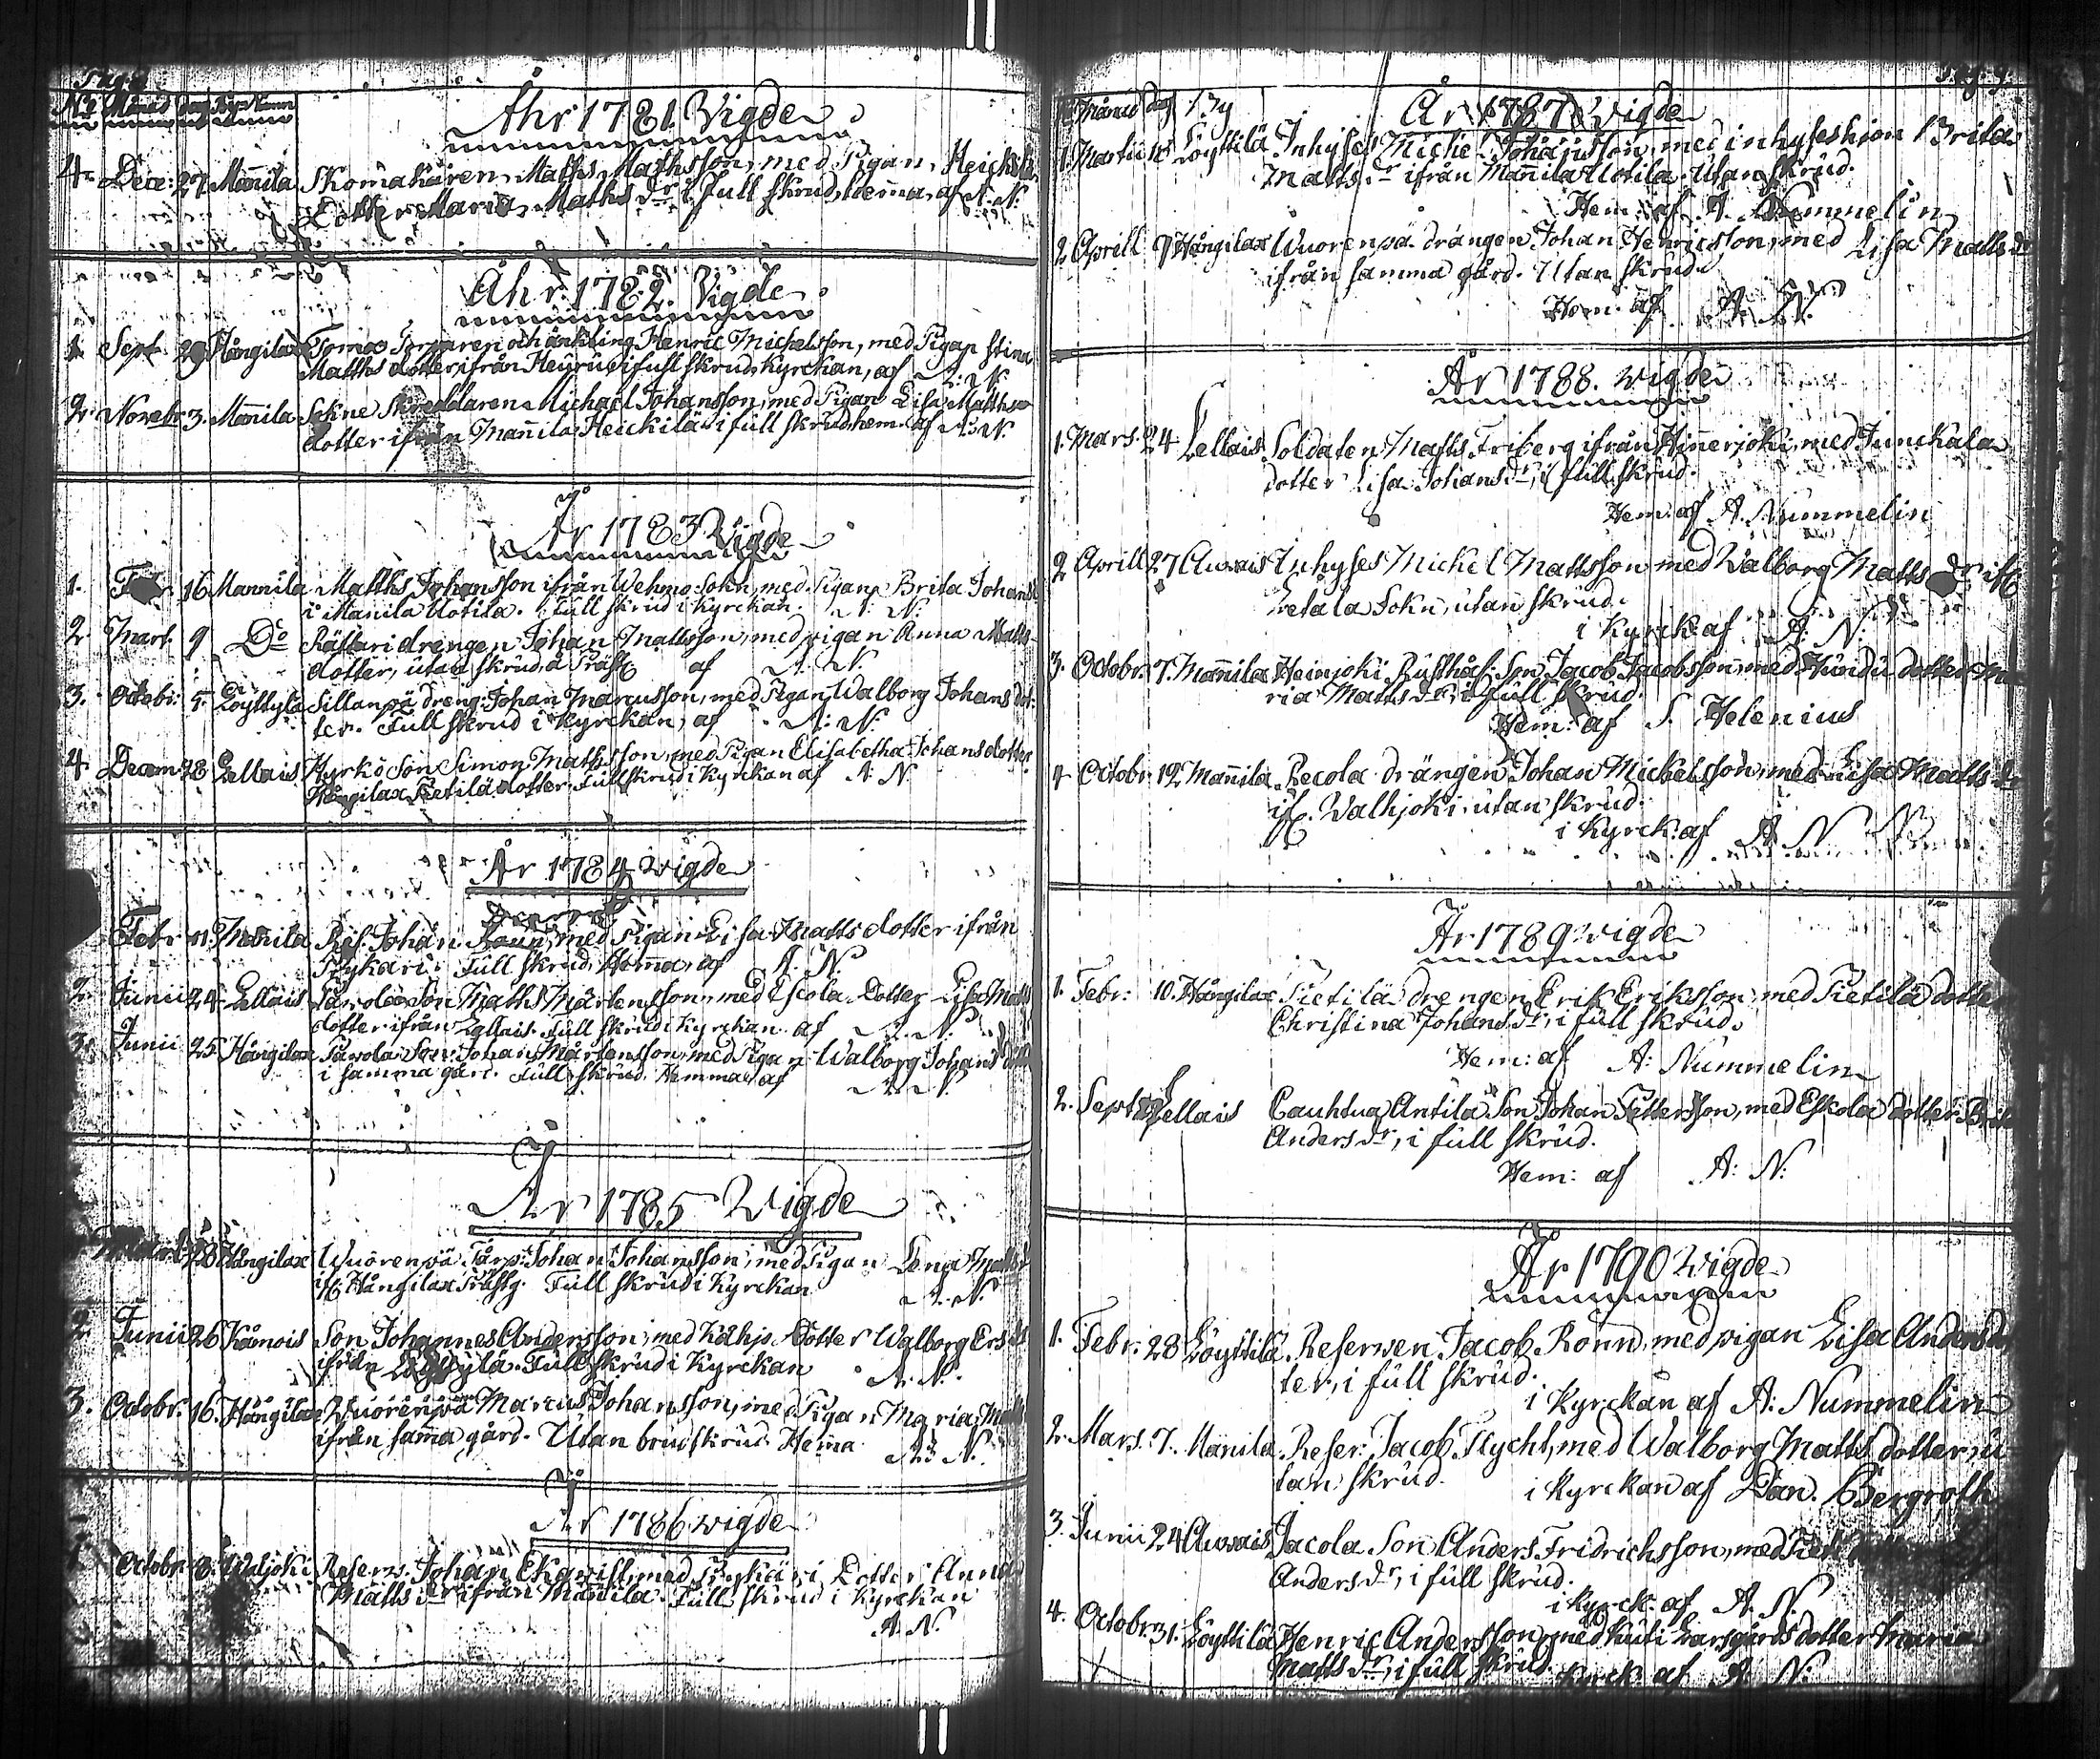 Pag:
N:r Månad dag By: Namn
Åhr 1781. Vigde
4. Dece: 27 Mañila Skomakaren Maths Mathsson, med Pigan, Heickilä
Dotter Maria Maths d:r i full skrud, hem̃a, af A. N:
Åhr 1782. Vigde
1. Sept 29 Hångilax Torparen och änkling Henric Michelsson, med Pigan Stina
Matths dotter, ifrån i full skrud, Kyrckan, af A: N:
2. Novebr 3. Mañila Sokne Skreddaren Michael Johansson, med Pigan Lisa Matths
dotter ifrån Mañila Heickilä i full skrud hem. af A: N.
År 1783 Vigde
1. 16 Mannila Matths Johansson ifrån Wehmo Sokn, med Pigan Brita Johans
i Mañila Uotila. full skrud i Kyrckan. A: N:
2. Mart. 9 D:o Rästari drengen Johan Mattsson, med pigan Anna Matts
dotter, utan skrud, å Präst af A. N.
3. Octobr: 5. Löyttylä Sillanpä dreng: Johan Marcusson, med Pigan Walborg Johans dot:
ter. Full skrud i Kyrckan, af A: N:
4. Decem 28 Lellais Kyrkö Son Simon Mathsson, med Pigan Elisabetha Johansdotter
Hångilax Pietilä dotter, full skrud i Kyrckan af A: N
År 1784 wigde
Febr 11. Mañila Res. Johan med Pigan Lisa Matts dotter ifrån
Pykäri. Full skrud, Hem̃a, af A. N:
2. Junii 24 Lellais Pawola Son Maths Mårtensson, med Escola Dotter Lisa Matts
dotter ifrån Lellais. Full skrud i Kyrckan af A. N.
3. Junii 25 Hångilax Pawola Son: Johan Mårtensson, med Pigan Walborg Johans
i samma gård. Full skrud. Hemma af A. N.
År 1785 Wigde
28 Hångilax Wuorenpä Torp: Johan Johansson, med Pigan Lena Matts
ifr Hångilax Prästg. Full skrud i Kyrckan A. N.
2. Junii 26 Kåmois Son Johannes Andersson, med Kåhjo Dotter Walborg Ers
ifrån Löyttylä. Full skrud i Kyrckan A. N.
3. Octobr: 16. Hångilax Wuorenpä Marcus Johansson, med Pigan Maria Matts
ifrån sam̃a gård. Utan brudskrud. Hem̃a. A: N.
År 1786 wigde
Octobr. 8. Waljoki Reserv. Johan Ekqwist, med Pykäri Dotter Anna
Matts d:r ifrån Mañila. Full skrud i Kyrckan
A. N.
Månad dag By
År 1787 Wigde
1 Martii Löyttilä Inhyses Michel med inhyses hion Brita
Matts d:r ifrån Mañila Uotila. Utan skrud.
Hem: af A. Nummelin
2 Aprill 9 Hångilax Wuorenpä drängen Johan Henricsson, med Lisa Matts d:r
ifrån samma gård. Utan skrud.
Hem: af A. N.
År 1788. wigde
1. Mars. 24 Lellais. Soldaten Matts Friberg ifrån Hiñerjoki, med Junckala
dotter Lisa Johans d:r, i full skrud.
Hem: af A. Nummelin
2 Aprill 27 Auvais Inhyses Mickel Mattsson med Walborg Matts d:r ifr
Letala Sokn, utan skrud.
i Kyrck: af A. N.
3. Octobr. 7. Mañila Heinjoki Rusthåls: Son Jacob Jacobsson, med Hundu dotter Ma
ria Matts d:r, i full skrud.
Hem: af S. Helenius
4 Octobr. 12 Mañila Recola drängen Johan Mickelsson, med Lisa Matts d:r
ifr. Walhjoki, utan skrud.
i Kyrck: af A N
År 1789 wigde
1. Febr: 10. Hångilax Pietilä drengen Erik Eriksson, med Pietilä dotter
Christina Johans d:r, i full skrud.
Hem: af A: Nummelin
2. Sept Lellais Cauhtua Antila Son Johan Pettersson, med Eskola dotter Brita
Anders d:r, i full skrud.
Hem: af A: N:
År 1790 wigde
1. Febr. 28 Löyttilä. Reserven Jacob Rönn, med pigan Lisa Anders do
ter, i full skrud.
i Kyrckan af A: Nummelin
2. Mars. 7. Mañila. Reser: Jacob Flycht, med Walborg Matts dotter, u
tan skrud. i Kyrckan af Dan. Bergroth
3. Junii 24 Auvais Jacola Son Anders Fridrichsson, med
Anders d:r, i full skrud.
i Kyrck: af A. N
4. Octobr. 31. Löyttilä Henric Andersson, med Kuti Larsgårds dotter Maria
Matts d:r, i full skrud. Kyrck af A: N: